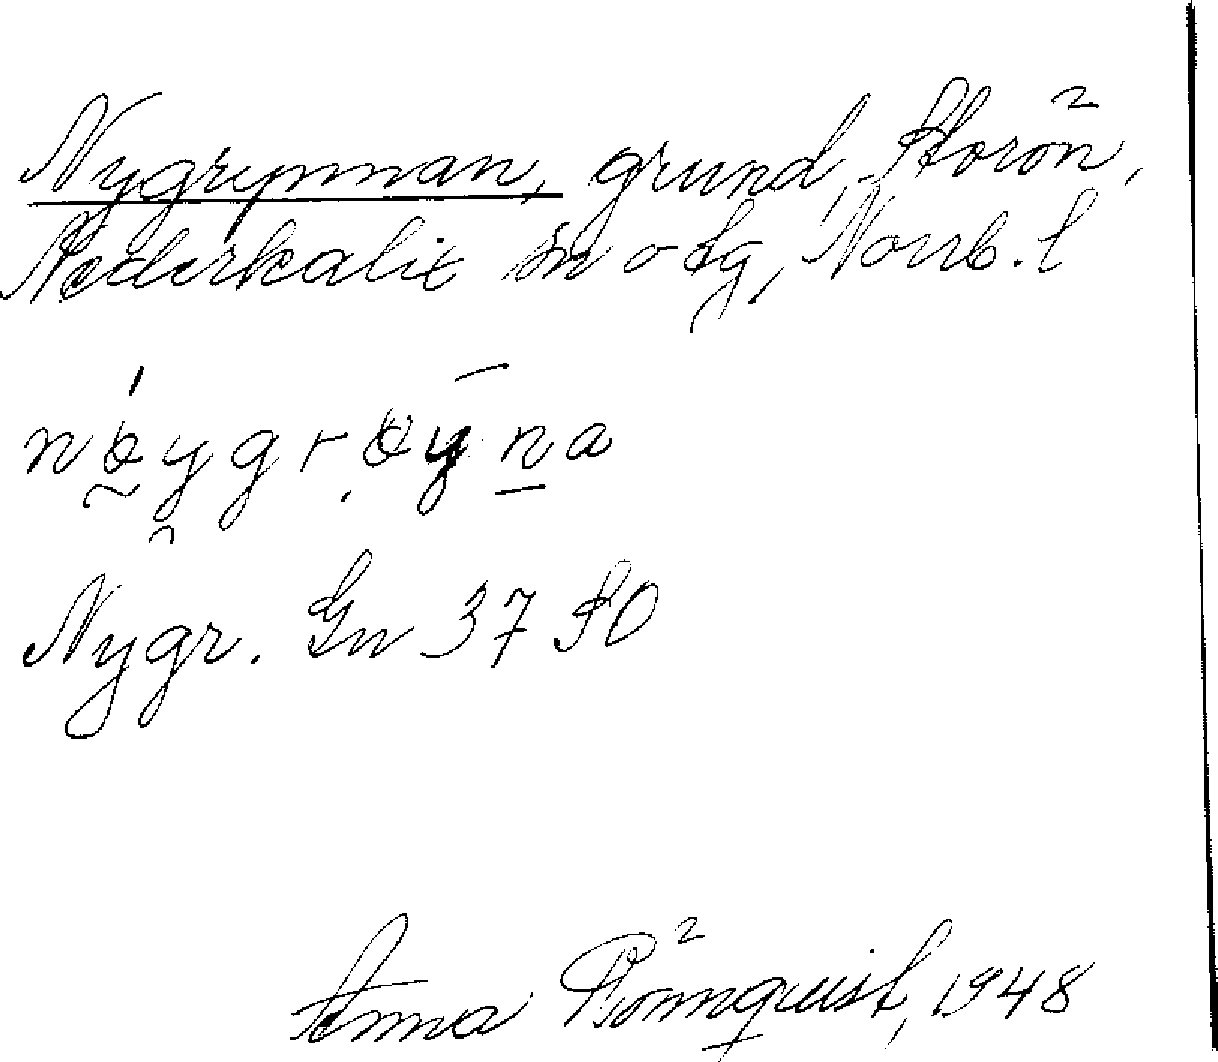 Nygrynnan, grund, Storön,
Nederkalix sn o tg, Norrb. l
Nygr. Gn 37 SO
Anna Rönnquist, 1948